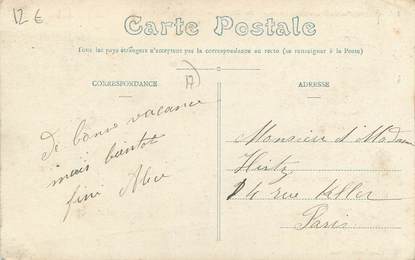 12 €
Carte Postale
Tous les pays étrangers n'acceptent pas la correspondance au recto (se renseigner à la Poste)
CORRESPONDANCE
ADRESSE
De bonne vacance
mais bientot
fini Alice
Monsieur et Madam
Hirtz
14 rue Keller
Paris